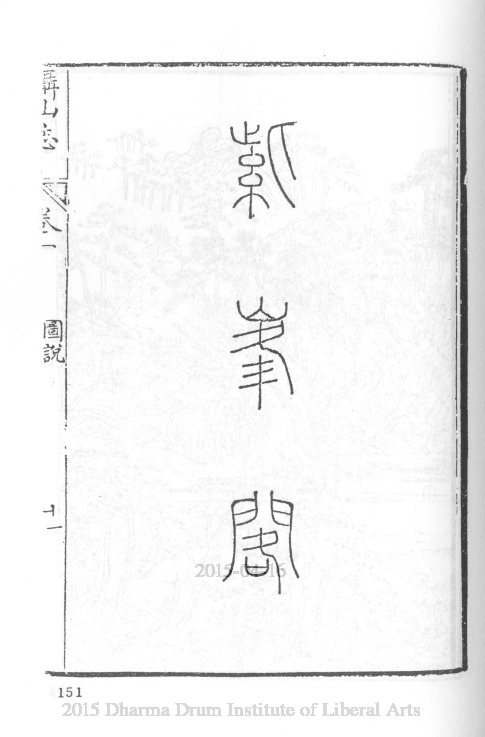 紫峯閣
攝山志 卷一 圖說 十一
151
2015-04-16
2015 Dharma Drum Institute of Liberal Arts